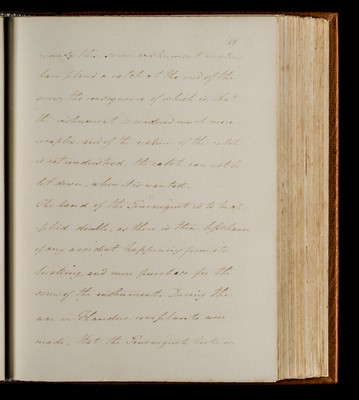 some instrument makers
have placed a catch at the end of the
screw, the consequence of which is, that
the instrument is rendered much more
complex, and if the nature of the catch
is not understood, the catch cannot be
let down, when it is wanted.
The band of the Tourniquet is to be ap-
plied double, as there is then less chance
of any accident happening from its
breaking, and more purchase for the
screw of the instrument. During the
war in Flanders, complaints were
made, that the Tourniquets broke or